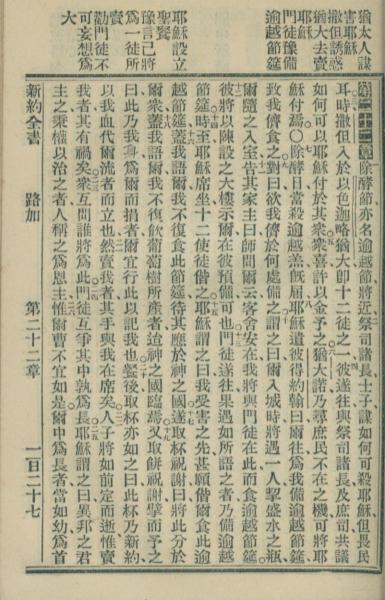 猶太人謀
害耶穌
撒但誘惑
猶大去賣
耶穌
門徒豫備
逾越節筵
耶穌設立
聖餐
豫言己將
爲一徒所
賣
勸門徒不
可妄想爲
大
第二十二章 除酵節亦名逾越節將近祭司諸長士子謀如何可殺耶穌但畏民
耳時撒但入於以色迦略猶大卽十二徒之一彼遂往與祭司諸長及庶司共議
如何可以耶穌付於其衆衆喜許以金予之猶大諾乃尋庶民不在之機可將耶
穌付焉〇除酵日當殺逾越羔旣屆耶穌遣彼得約翰曰爾往爲我備逾越節筵
致我儕食之對曰欲我儕於何處備之謂之曰爾入城時將遇一人挈盛水之瓶
爾隨之入室告其家主曰師問爾云客舍安在我將與門徒在此而食逾越節筵
彼將以陳設之大樓示爾在彼預備可也門徒遂往果遇如所語之者乃備逾越
節筵時至耶穌席坐十二使徒偕之耶穌謂之曰我受害之先甚願偕爾食此逾
越節筵蓋我語爾我不復食此節筵待其應於神之國遂取杯祝謝曰將此分於
爾衆蓋我語爾我不復飲葡萄樹所產者迨神之國臨焉又取餅祝謝擘而予之
曰此乃我身爲爾而捐者爾宜行此以記我也餐後取杯亦如之曰此杯乃新約
以我血代爾流者而立也然賣我者其手與我在席矣人子將如前定而逝惟賣
我者其有禍矣衆互問誰將爲此門徒互爭其中孰爲長耶穌謂之曰異邦之君
主之秉權以治之者人稱之爲恩主惟爾曹不宜如是爾中爲長者當如幼爲首
新約全書 路加 第二十二章 一百二十七